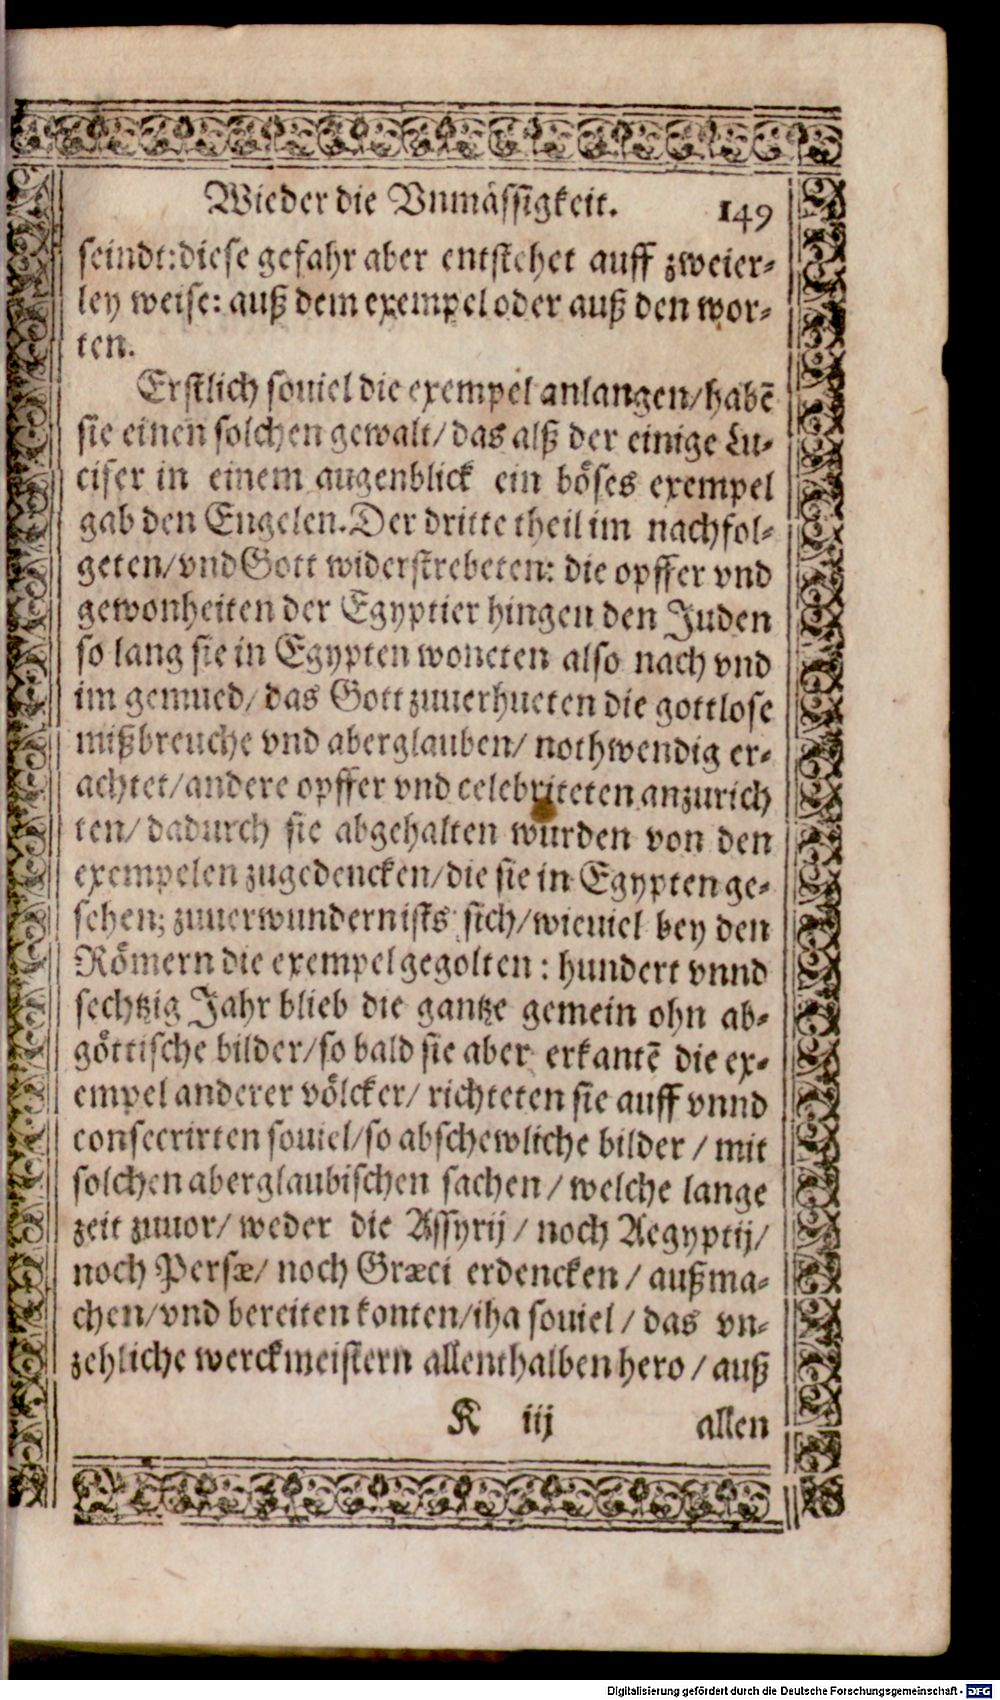 Wieder die Vnmässigkeit. 149
seindt:diese gefahr aber entstehet auff zweier-
ley weise: auß dem exempel oder auß den wor-
ten.
Erstlich souiel die exempel anlangen/habē
sie einen solchen gewalt/das alß der einige Lu-
cifer in einem augenblick ein böses exempel
gab den Engelen.Der dritte theil im nachfol-
geten/vnd Gott widerstrebeten: die opffer vnd
gewonheiten der Egyptier hingen den Juden
so lang sie in Egypten woneten also nach vnd
im gemued/das Gott zuuerhueten die gottlose
mißbreuche vnd aberglauben/nothwendig er-
achtet/andere opffer vnd celebriteten anzurich
ten/dadurch sie abgehalten wurden von den
exempelen zugedencken/die sie in Egypten ge-
sehen; zuuerwundern ists sich/wieuiel bey den
Römern die exempel gegolten: hundert vnnd
sechtzig Jahr blieb die gantze gemein ohn ab-
göttische bilder/so bald sie aber erkantē die ex-
empel anderer völcker/richteten sie auff vnnd
consecrirten souiel/so abschewliche bilder/mit
solchen aberglaubischen sachen/welche lange
zeit zuuor/weder die Assyrij/noch Aegyptij/
noch Persæ/noch Græci erdencken/außma-
chen/vnd bereiten konten/iha souiel/das vn-
zehliche werckmeistern allenthalben hero/auß
K iij allen
Digitalisierung gefördert durch die Deutsche Forschungsgemeinschaft - DFG